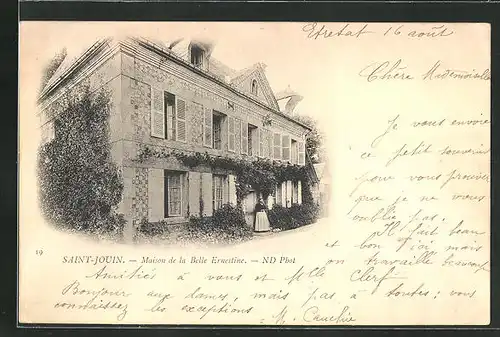 Etretat 16 août
Chère Mademoiselle
Je vous envoie
ce petit souvenir
pour vous prouver
que je ne vous
oublie pas.
Il fait beau
et bon ici mais
on travaille beaucoup
19
SAINT-JOUIN. — Maison de la Belle Ernestine. — ND Phot
Amitiés à vous et Mlle Clerf
Bonjour aux dames, mais pas à toutes: vous
connaissez les exceptions M. Cauchie